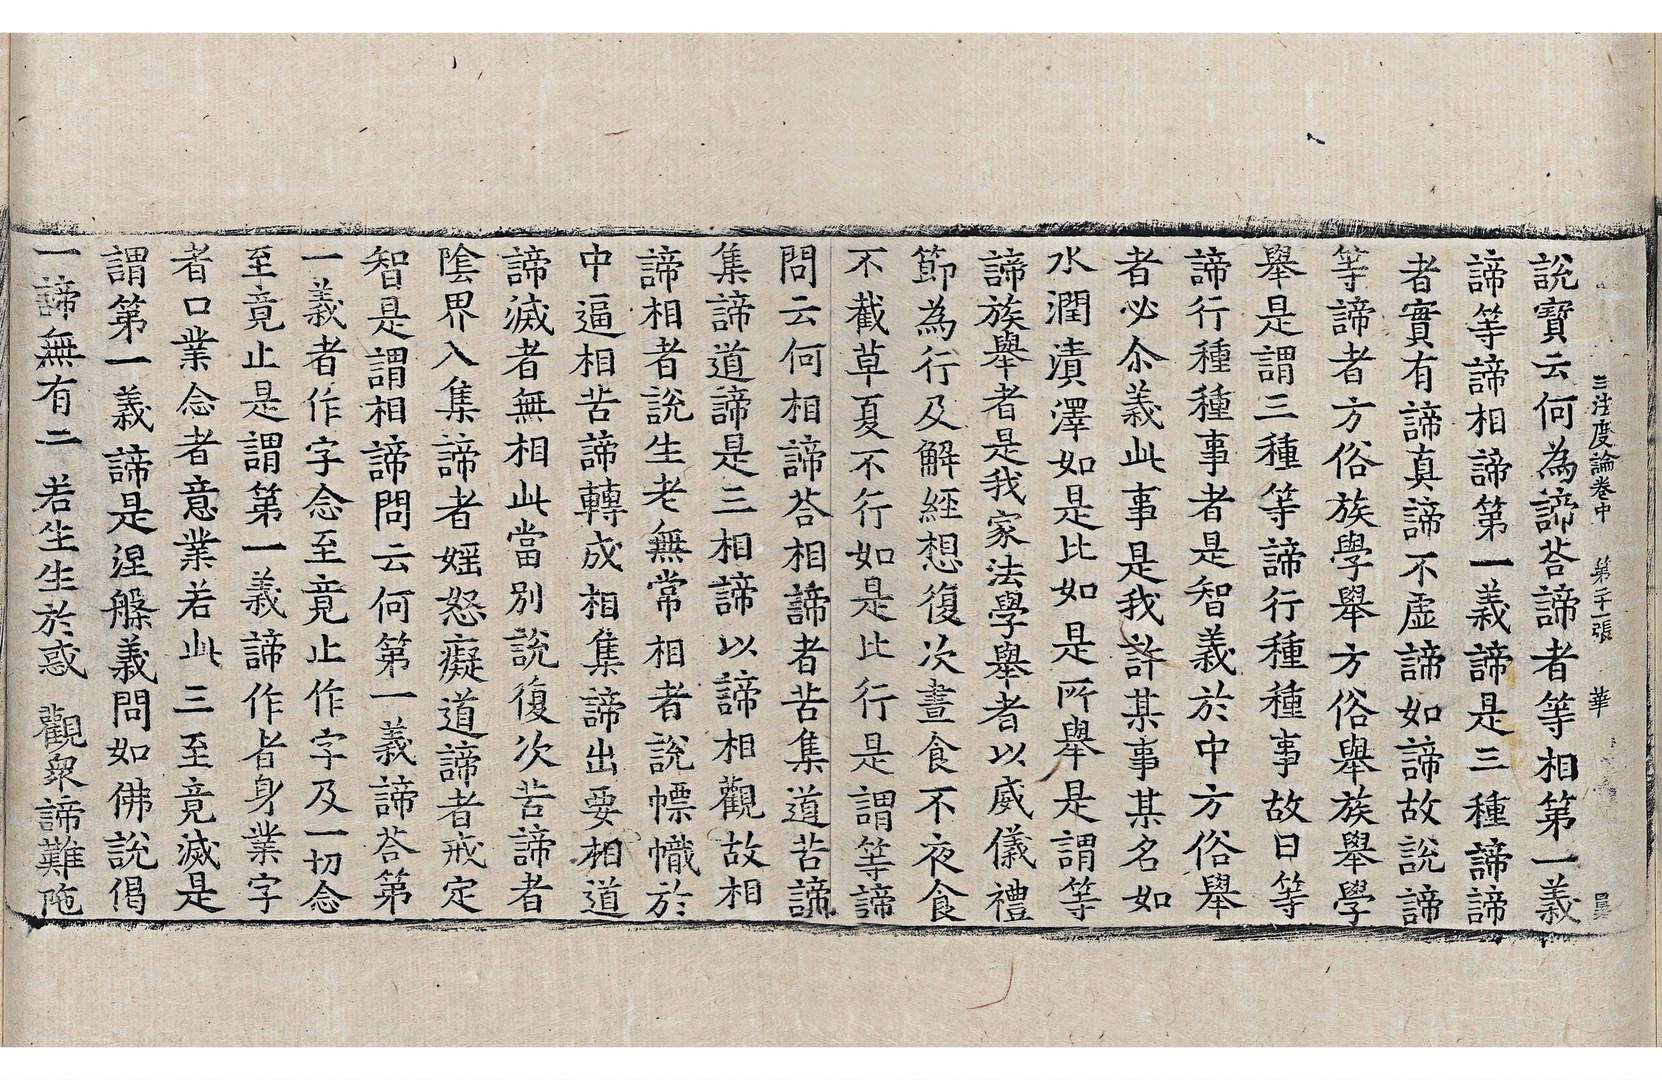 三法度論卷中　第二十一張　華
說寶云何為諦荅諦者等相第一義
諦等諦相諦第一義諦是三種諦諦
者實有諦真諦不虛諦如諦故說諦
等諦者方俗族學舉方俗舉族舉學
舉是謂三種等諦行種種事故曰等
諦行種種事者是智義於中方俗舉
者必尒義此事是我許某事某名如
水潤漬澤如是比如是所舉是謂等
諦族舉者是我家法學舉者以威儀禮
節為行及解經想復次晝食不夜食
不截草夏不行如是比行是謂等諦
問云何相諦荅相諦者苦集道苦諦
集諦道諦是三相諦以諦相觀故相
諦相者說生老無常相者說幖幟於
中逼相苦諦轉成相集諦出要相道
諦滅者無相此當別說復次苦諦者
陰界入集諦者婬怒癡道諦者戒定
智是謂相諦問云何第一義諦荅第
一義者作字念至竟止作字及一切念
至竟止是謂第一義諦作者身業字
者口業念者意業若此三至竟滅是
謂第一義諦是涅槃義問如佛說偈
一諦無有二　若生生於惑　觀衆諦難陁